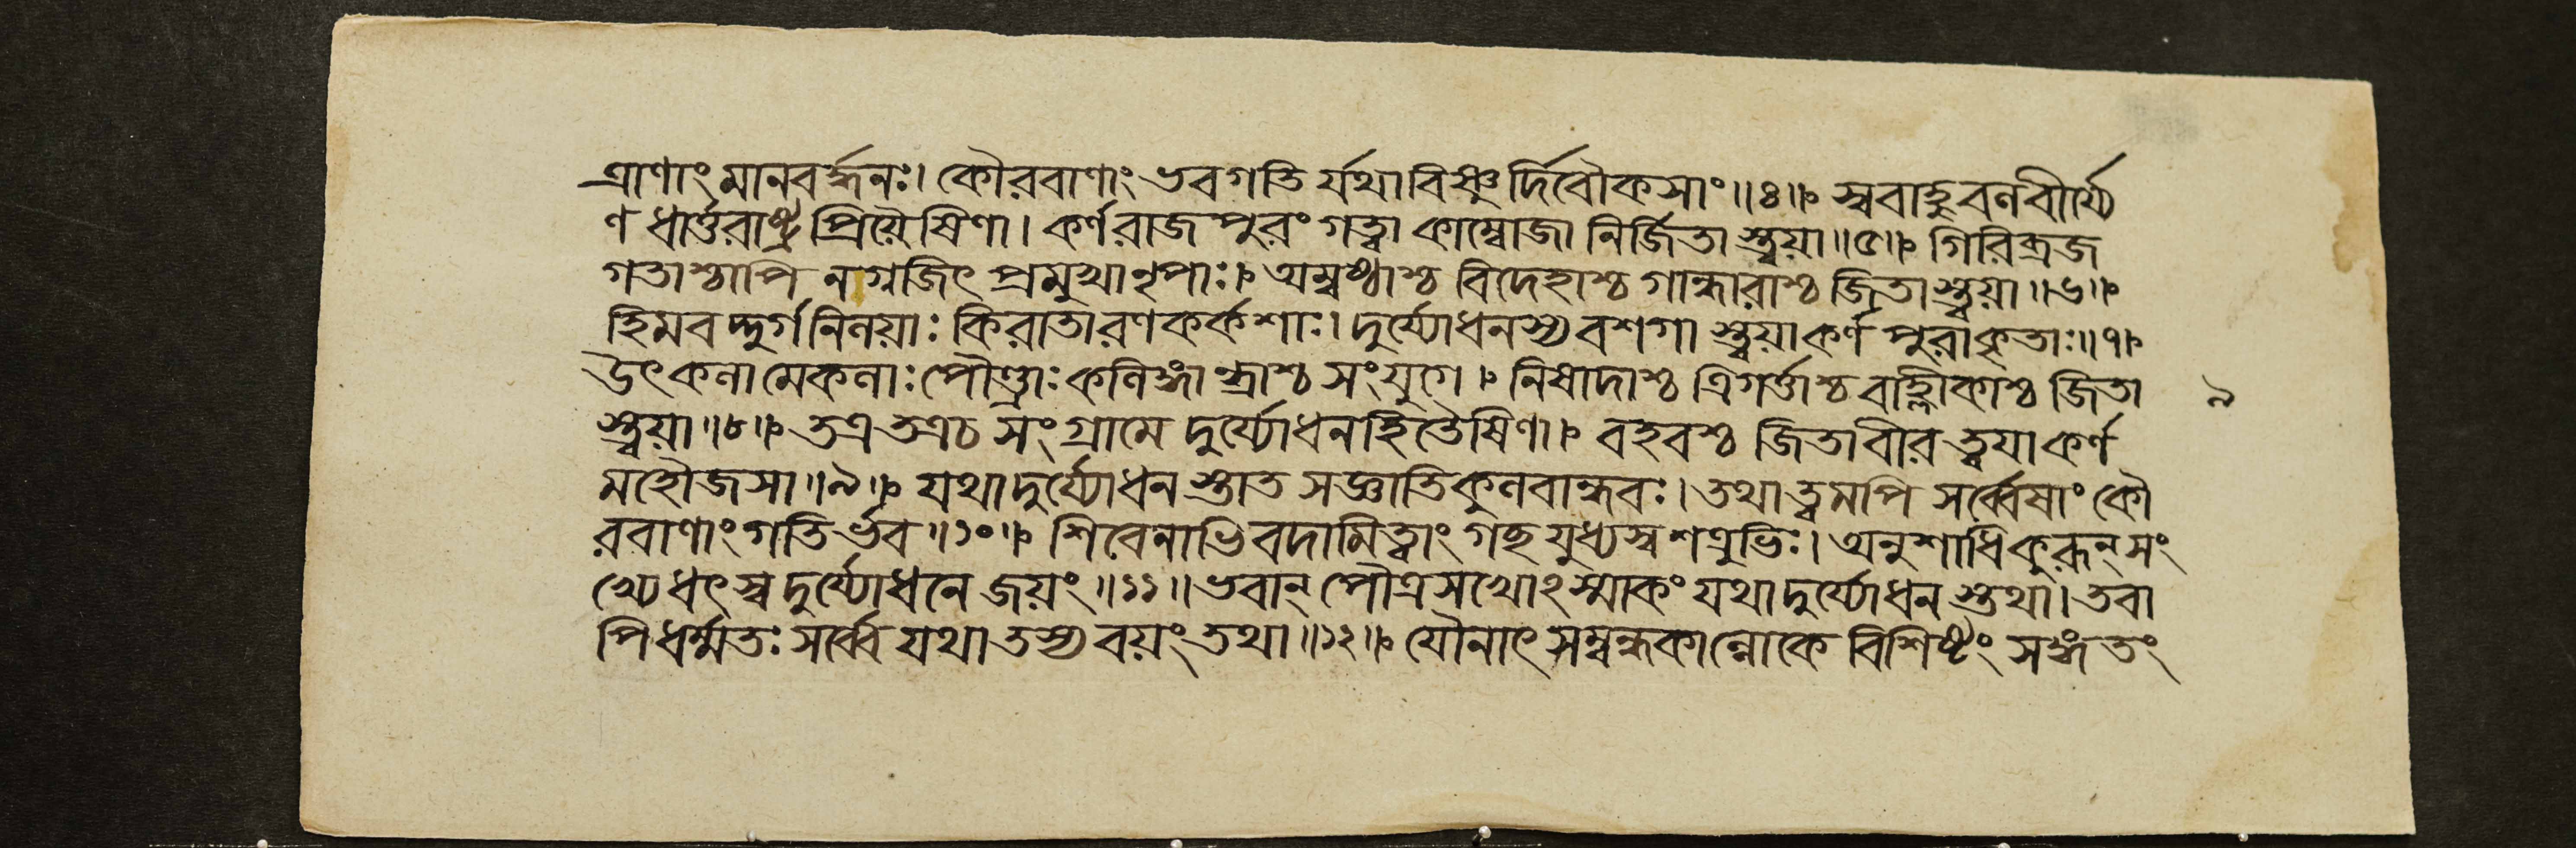 ত্রাণাং মানবর্দ্ধনঃ। কৌরবাণাং ভবগতি র্যথাবিষ্ণু র্দিবৌকসাং॥৪॥ স্ববাহুবলবীর্য্যে
ণ ধার্ত্তরাষ্ট্র প্রিয়ৈষিণা। কর্ণরাজ পুরং গত্বা কাম্বোজা নির্জিতা স্ত্বয়া॥৫॥ গিরিব্রজ
গতাশ্চাপি নগ্নজিৎ প্রমুখানৃপাঃ। অম্বষ্ঠাশ্চ বিদেহাশ্চ গান্ধারাশ্চ জিতা স্ত্বয়া॥৬॥
হিমবদ্দুর্গনিলয়াঃ কিরাতারণকর্কশাঃ। দুর্য্যোধনস্য বশগা স্ত্বয়াকর্ণ পুরাকৃতাঃ॥৭॥
উৎকলা মেকলাঃ পৌণ্ড্রাঃ কলিঙ্গান্ধ্রাশ্চ সংযুগে। নিষাদাশ্চ ত্রিগর্ত্তাশ্চ বাহ্লীকাশ্চ জিতা ৯
স্ত্বয়া॥৮॥ তত্র তত্রচ সংগ্রামে দুর্য্যোধনহিতৈষিণা। বহবশ্চ জিতাবীর ত্বয়াকর্ণ
মহৌজসা॥৯॥ যথাদুর্য্যোধন স্তাত সজ্ঞাতিকুলবান্ধবঃ। তথাত্বমপি সর্ব্বেষাং কৌ
রবাণাং গতি র্ভব॥১০॥ শিবেনাভিবদামিত্বাং গচ্ছ যুধ্যস্ব শত্রুভিঃ। অনুশাধি কুরূন্ সং
খ্যে ধৎস্ব দুর্য্যোধনে জয়ং॥১১॥ ভবান্ পৌত্রসখোঽস্মাকং যথাদুর্য্যোধন স্তথা। তবা
পি ধর্ম্মতঃ সর্ব্বে যথাতস্য বয়ং তথা॥১২॥ যৌনাৎ সম্বন্ধকাল্লোকে বিশিষ্টং সঙ্গতং